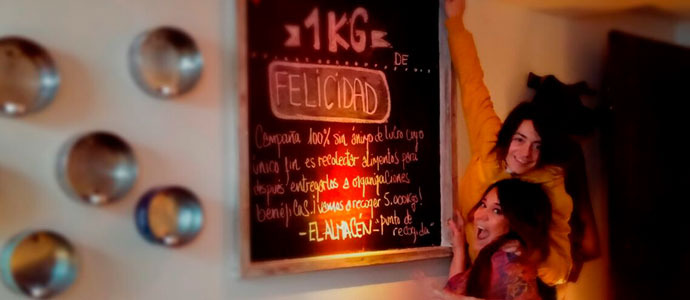 1KG
DE
FELICIDAD
Campaña 100% sin ánimo de lucro cuyo
único fin es recolectar alimentos para
después entregarlos a organizaciones
benéficas. ¡Vamos a recoger 5.000Kg!
- EL ALMACÉN - "punto de
recogida"